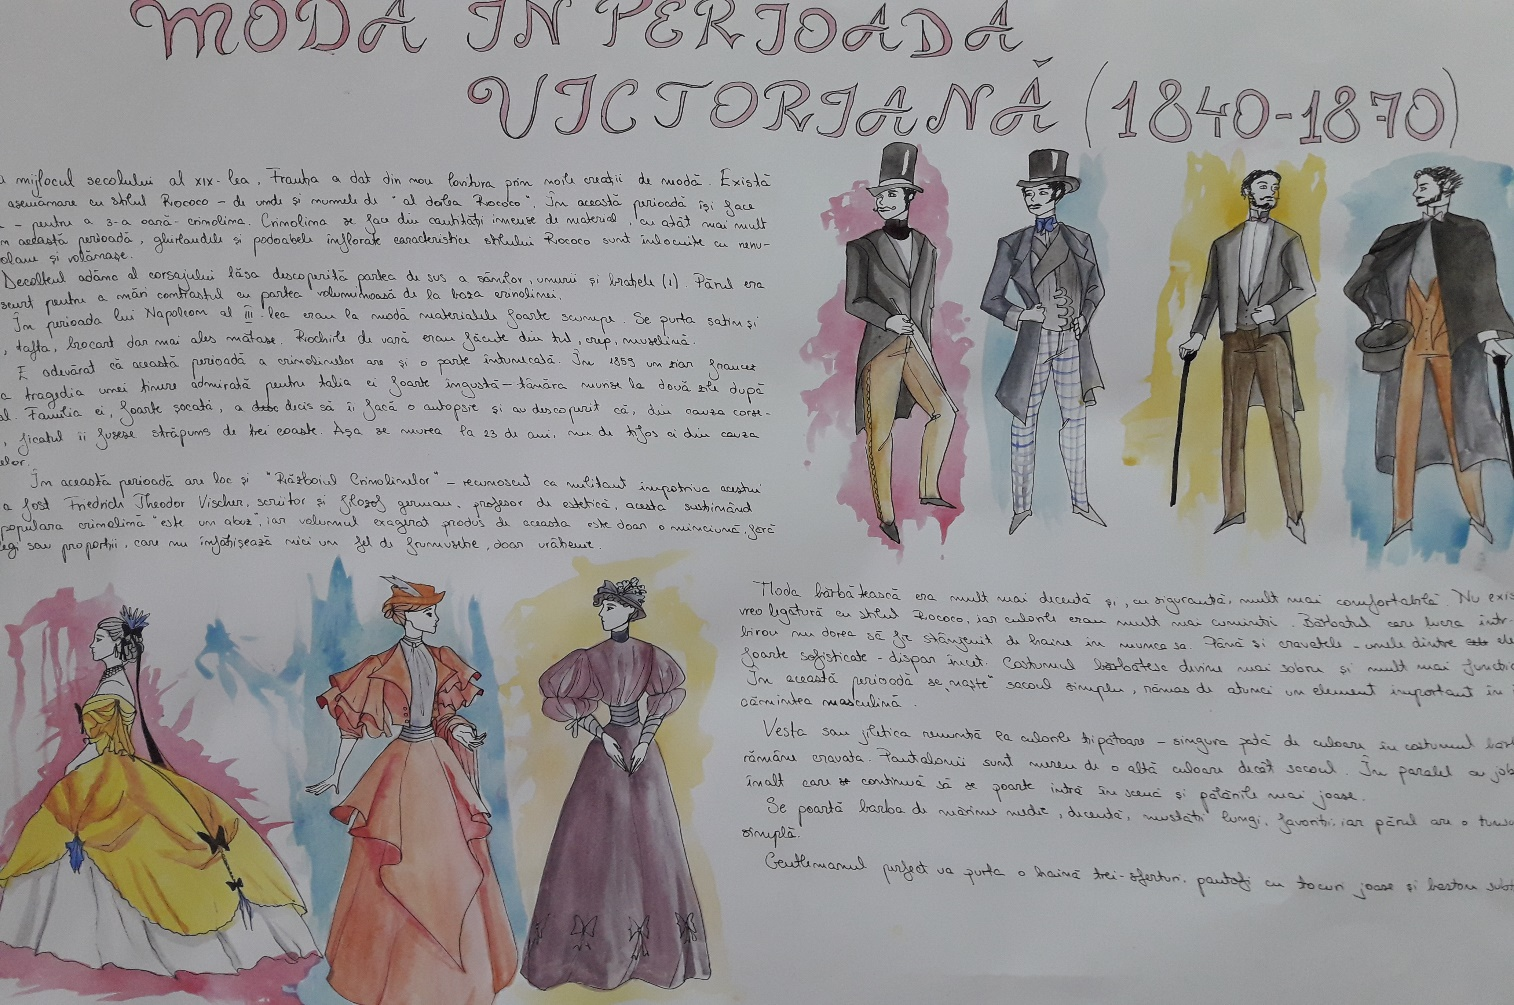 MODA ÎN PERIOADA
VICTORIANĂ (1840-1870)
mijlocul secolului al XIX-lea, Franța a dat din nou lovitura prin noile creații de modă. Există
asemănare cu stilul Rococo - de unde și numele de "al doilea Rococo". În această perioadă își face
- pentru a 3-a oară - crinolina. Crinolina se face din cantități imense de material, cu atât mai mult
în această perioadă, ghirlandele și podoabele înflorate caracteristice stilului Rococo sunt înlocuite cu
volane și volănașe.
Decolteul adânc al corsajului lăsa descoperită partea de sus a sânilor, umerii și brațele (1). Părul era
scurt pentru a mări contrastul cu partea voluminoasă de la baza crinolinei.
În perioada lui Napoleon al III-lea erau la modă materialele foarte scumpe. Se purta satin și
, tafta, brocart dar mai ales mătase. Rochiile de vară erau făcute din tul, crep, muselină.
E adevărat că această perioadă a crinolinelor are și o parte întunecată. În 1859 un ziar francez
a tragedia unei tinere admirată pentru talia ei foarte îngustă - tânăra murise la două zile după
al. Familia ei, foarte șocată, a decis să îi facă o autopsie și au descoperit că, din cauza corse-
, ficatul îi fusese străpuns de trei coaste. Așa se murea la 23 de ani, nu de tifos ci din cauza
elor.
În această perioadă are loc și "Războiul Crinolinelor" - recunoscut ca militant împotriva acestui
a fost Friedrich Theodor Vischer, scriitor și filozof german, profesor de estetică, acesta susținând
populara crinolină "este un abuz", iar volumul exagerat produs de aceasta este doar o minciună, fără
legi sau proporții, care nu înfățișează nici un fel de frumusețe, doar urâțenie.
Moda bărbătească era mult mai decentă și, cu siguranță, mult mai comfortabilă. Nu exis
vreo legătură cu stilul Rococo, iar culorile erau mult mai cuminți. Bărbatul care lucra într-
birou nu dorea să fie stânjenit de haine în munca sa. Până și cravatele - unele dintre ele
foarte sofisticate - dispar încet. Costumul bărbătesc devine mai sobru și mult mai funcțio
În această perioadă se „naște" sacoul simplu, rămas de atunci un element important în î
cămintea masculină.
Vesta sau jiletca renunță la culorile țipătoare - singura pată de culoare în costumul bărb
rămâne cravata. Pantalonii sunt mereu de o altă culoare decât sacoul. În paralel cu job
înalt care continuă să se poarte intră în scenă și pălăriile mai joase.
Se poartă barba de mărime medie, decentă, mustăți lungi, favoriți, iar părul are o
simplă.
Gentlemanul perfect va purta o haină trei-sferturi, pantofi cu tocuri joase și baston